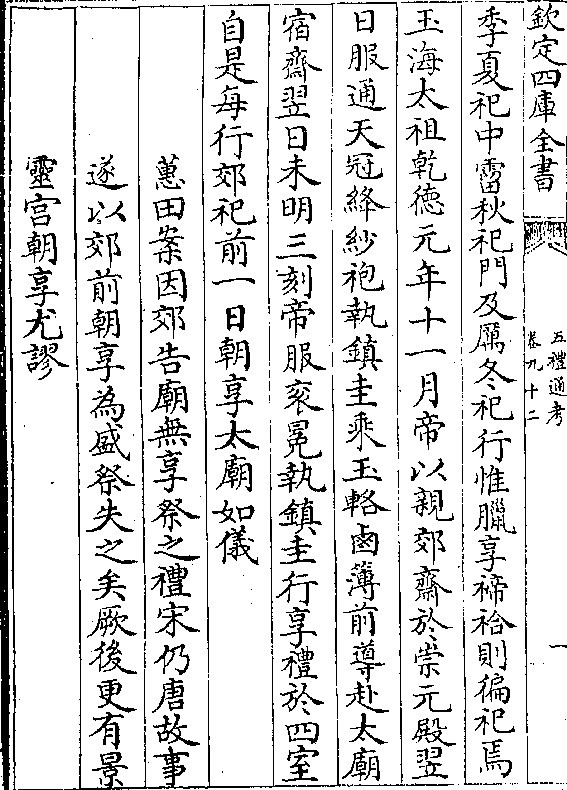 欽定四庫全書
五禮通考
卷九十二
一
季夏祀中霤秋祀門及厲冬祀行惟臘享禘祫則徧祀焉
玉海太祖乾德元年十一月帝以親郊齋於崇元殿翌
日服通天冠絳紗袍執鎮圭乘玉輅鹵簿前導赴太廟
宿齋翌日未明三刻帝服衮冕執鎮圭行享禮於四室
自是每行郊祀前一日朝享太廟如儀
蕙田案因郊告廟無享祭之禮宋仍唐故事
遂以郊前朝享為盛祭失之矣厥後更有景
靈宫朝享尤謬